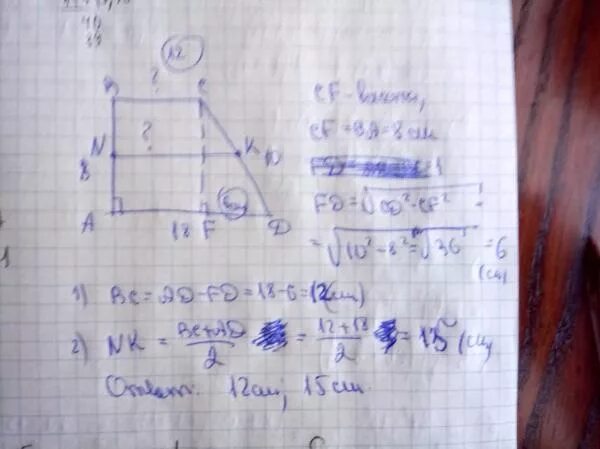 12
В ? С
N ? К 10
8
А 18 F 6см D
CF - высота,
CF = BA = 8 см
FD = √CD² - CF² =
= √10² - 8² = √36 = 6
(см)
1) BC = AD - FD = 18 - 6 = 12(см)
2) NK = BC + AD / 2 = 12 + 18 / 2 = 15 (см)
Ответ: 12см; 15см.